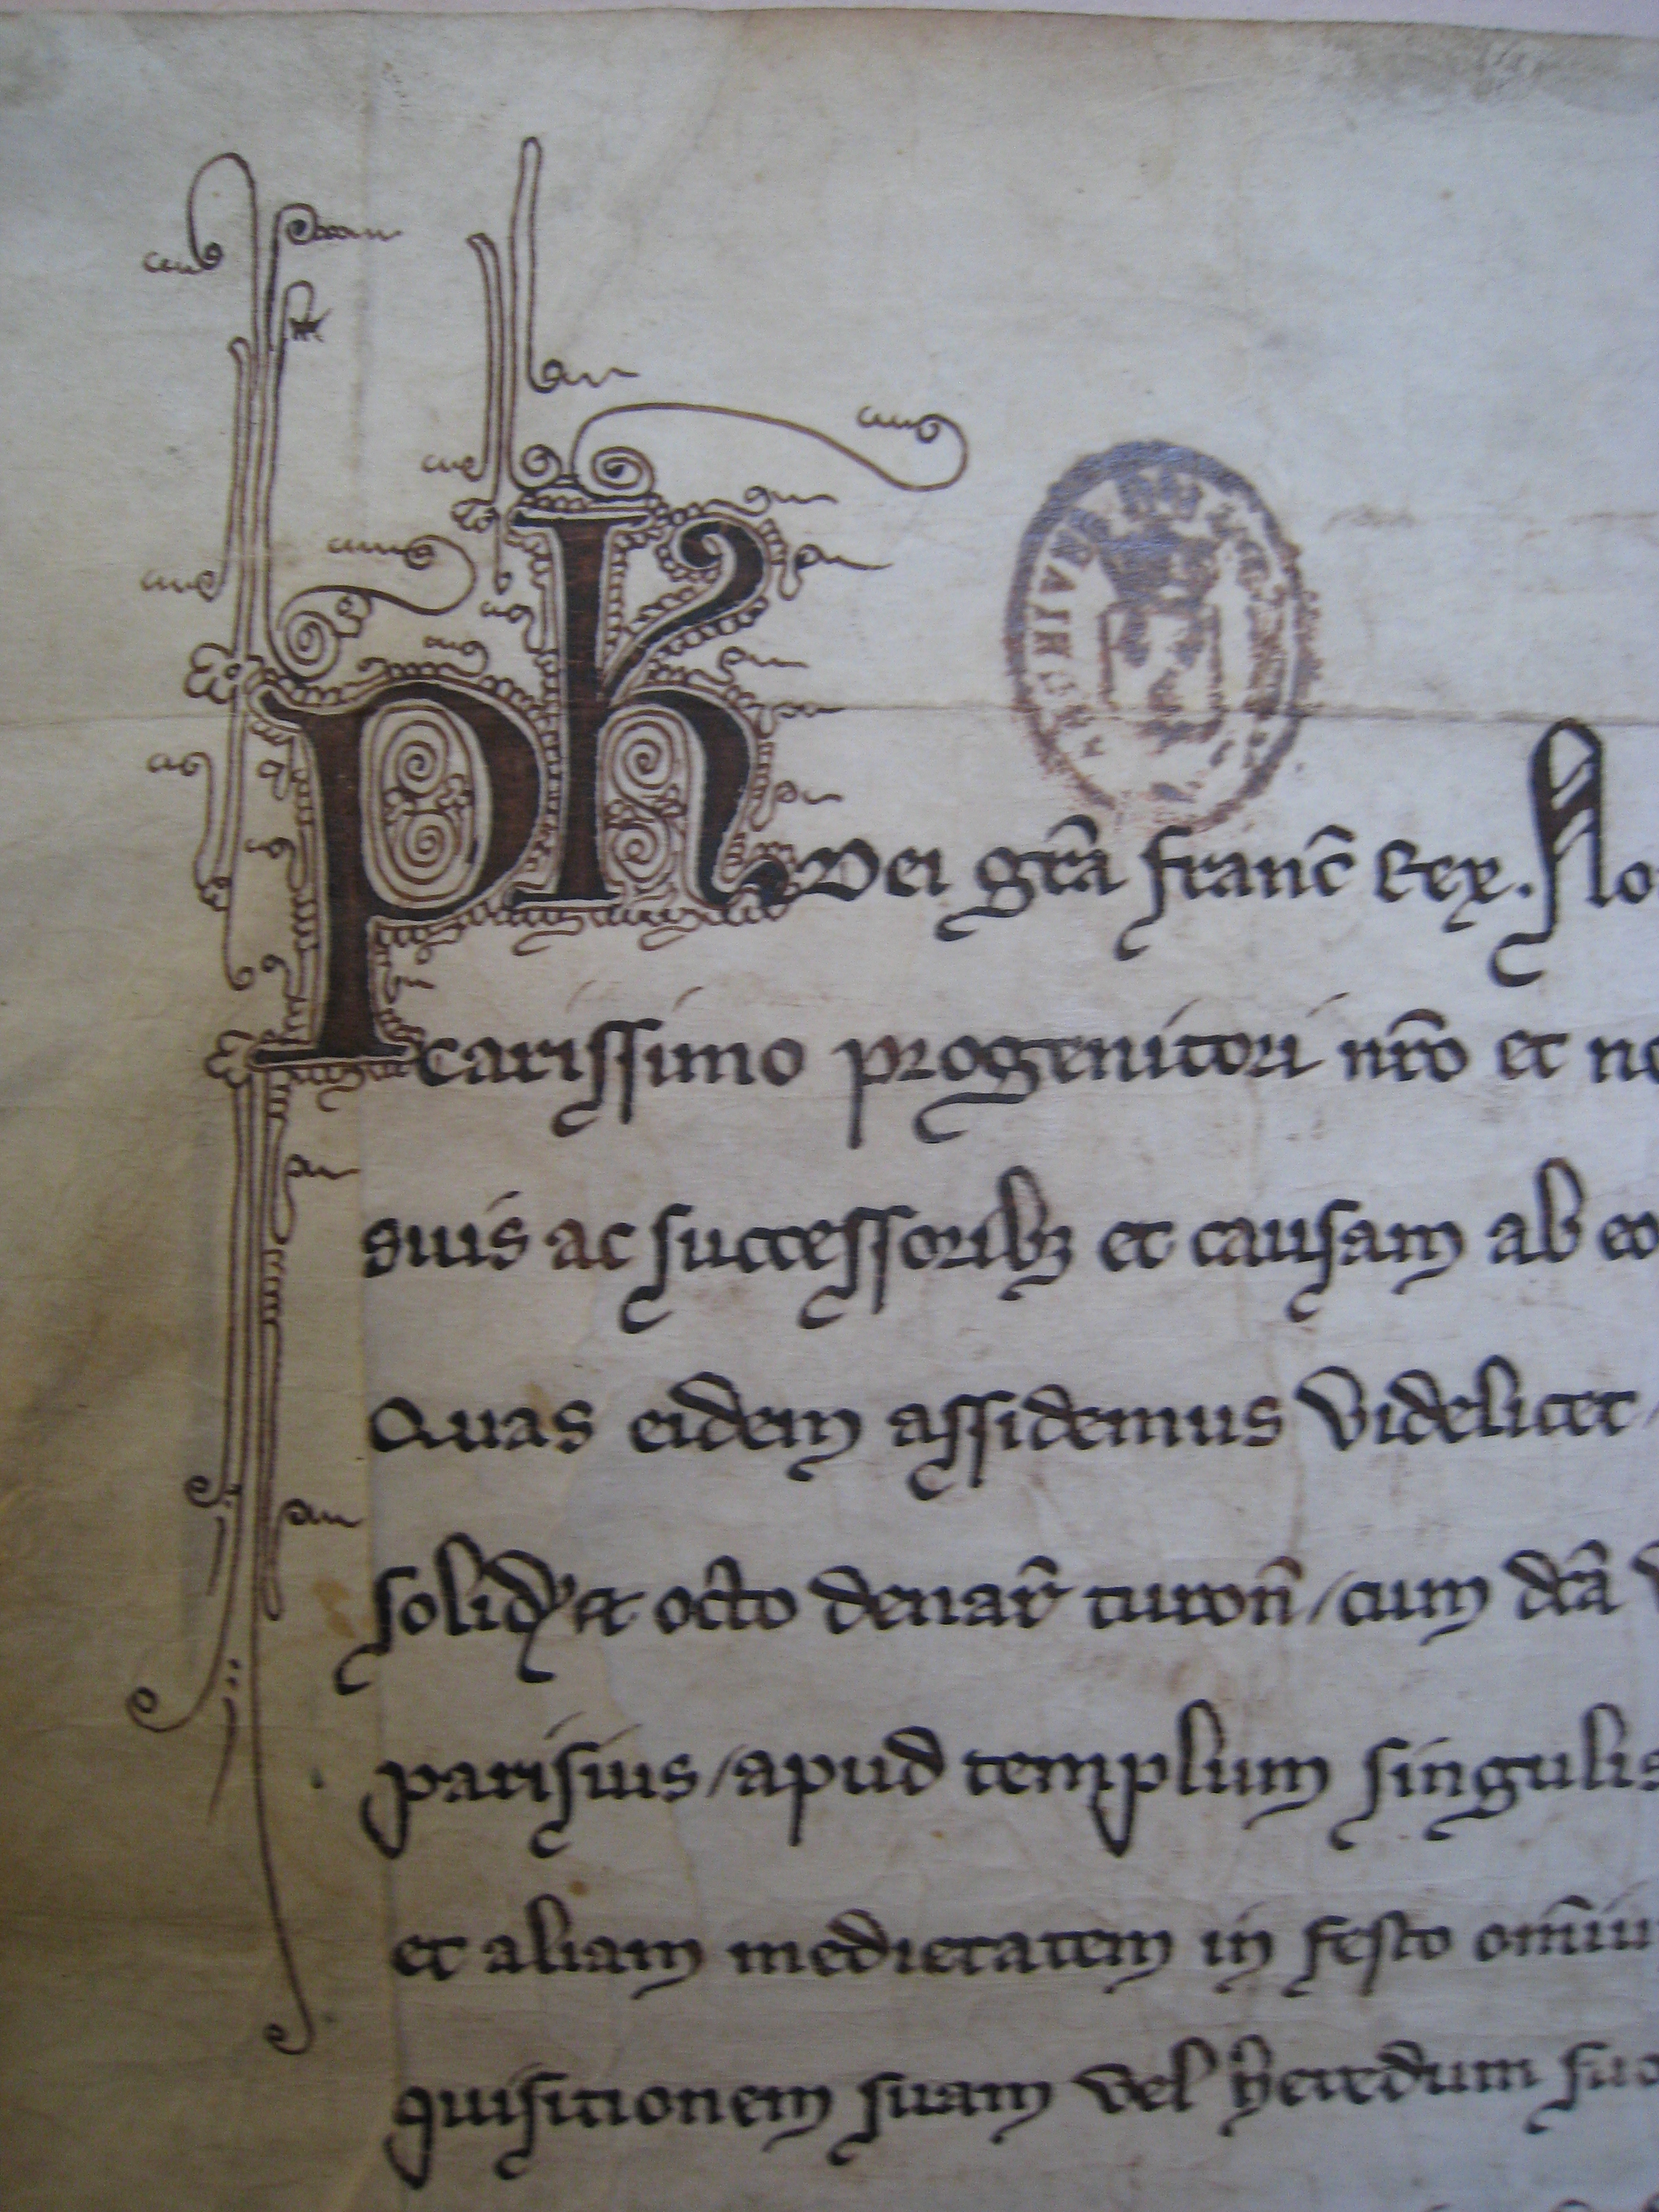 Ph Dei gr̃a franc̃ Rex. No
carissimo progenitori nr̃o et no
suis ac successoribꝫ et causam ab eo
Quas eidem assidemus videlicet /
solidꝭ et octo denar̃ turon̄ / cum dc̃a
parisius / apud templum singulis
et aliam medietatem in festo om̄iu
quisitionem suam vel heredum suo